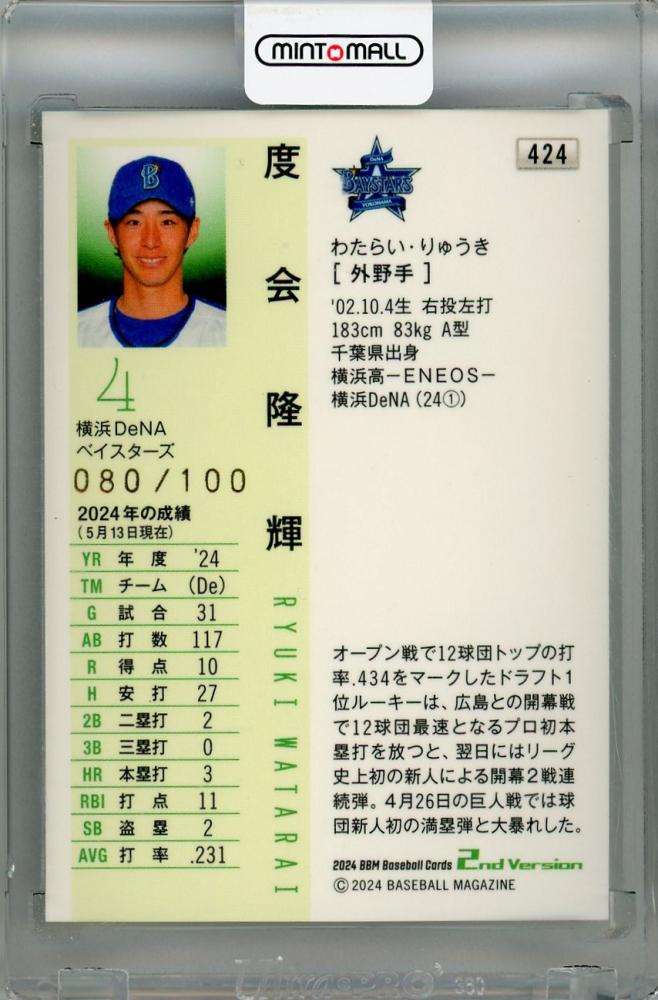 MINTMALL
424
度会隆輝
RYUKI WATARAI
B
DeNA
BAYSTARS
YOKOHAMA
わたらい・りゅうき
[ 外野手 ]
'02.10.4生 右投左打
183cm 83kg A型
千葉県出身
横浜高－ENEOS－
横浜DeNA(24①)
4
横浜DeNA
ベイスターズ
080/100
2024年の成績
(5月13日現在)
YR 年度 '24
TM チーム (De)
G 試合 31
AB 打数 117
R 得点 10
H 安打 27
2B 二塁打 2
3B 三塁打 0
HR 本塁打 3
RBI 打点 11
SB 盗塁 2
AVG 打率 .231
オープン戦で12球団トップの打
率.434をマークしたドラフト1
位ルーキーは、広島との開幕戦
で12球団最速となるプロ初本
塁打を放つと、翌日にはリーグ
史上初の新人による開幕2戦連
続弾。4月26日の巨人戦では球
団新人初の満塁弾と大暴れした。
2024 BBM Baseball Cards 2nd Version
©2024 BASEBALL MAGAZINE
Ultra PRO